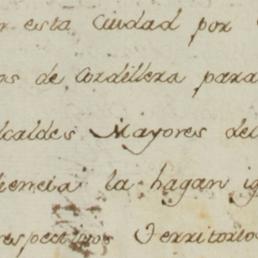 esta Ciudad por
de Cordillera para
Alcaldes Mayores del
la hagan
respectivos Territorios